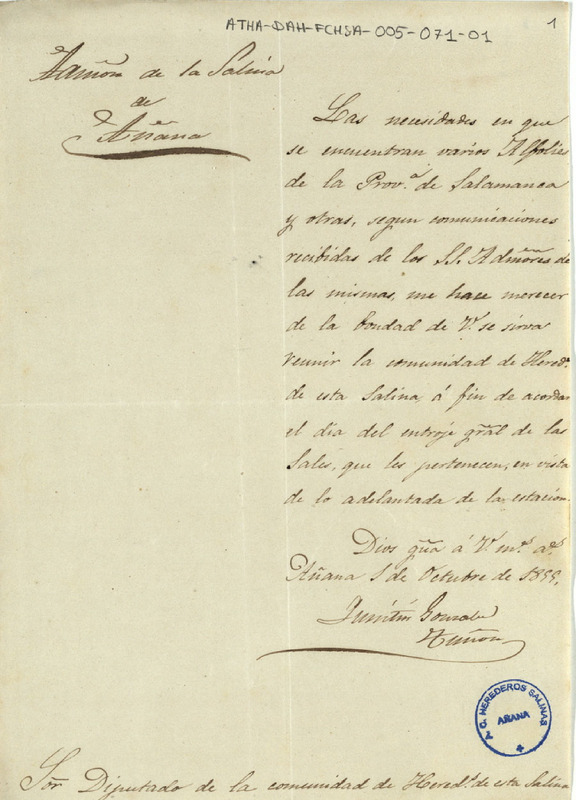 ATHA-DAH-FCHSA-005-071-01
1
Admon de la Salina
de
Añana
Las necesidades en que
se encuentran varios Alfolies
de la Prov.a de Salamanca
y otras, segun comunicaciones
recibidas de los SS. Admores de
las mismas, me hace merecer
de la bondad de V. se sirva
reunir la comunidad de Hered.s
de esta Salina á fin de acordar
el dia del entroje gral de las
Sales, que les pertenecen, en vista
de lo adelantada de la estacion.
Dios gue á V. m.s a.s
Añana 1 de Octubre de 1855.
Quintin Gonzalez
Tuñon
HEREDEROS SALINAS
AÑANA
Sor Diputado de la comunidad de Hered.s de esta Salina